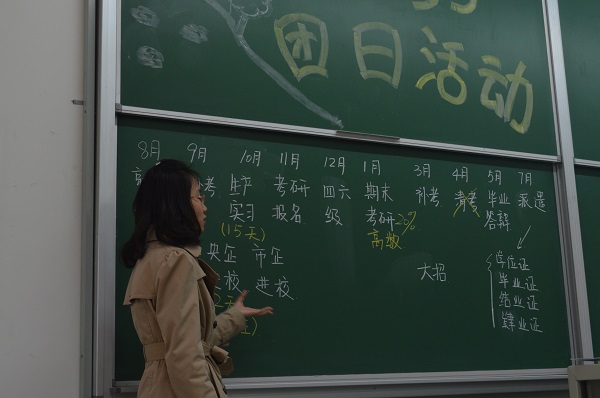 团日活动
8月 9月 10月 11月 12月 1月 3月 4月 5月 7月
考 生产 考研 四六 期末 补考 清考 毕业 派遣
实习 报名 级 考研20% 答辩
(15天) 高数
央企 市企
校 进校 大招
学位证
毕业证
结业证
肄业证